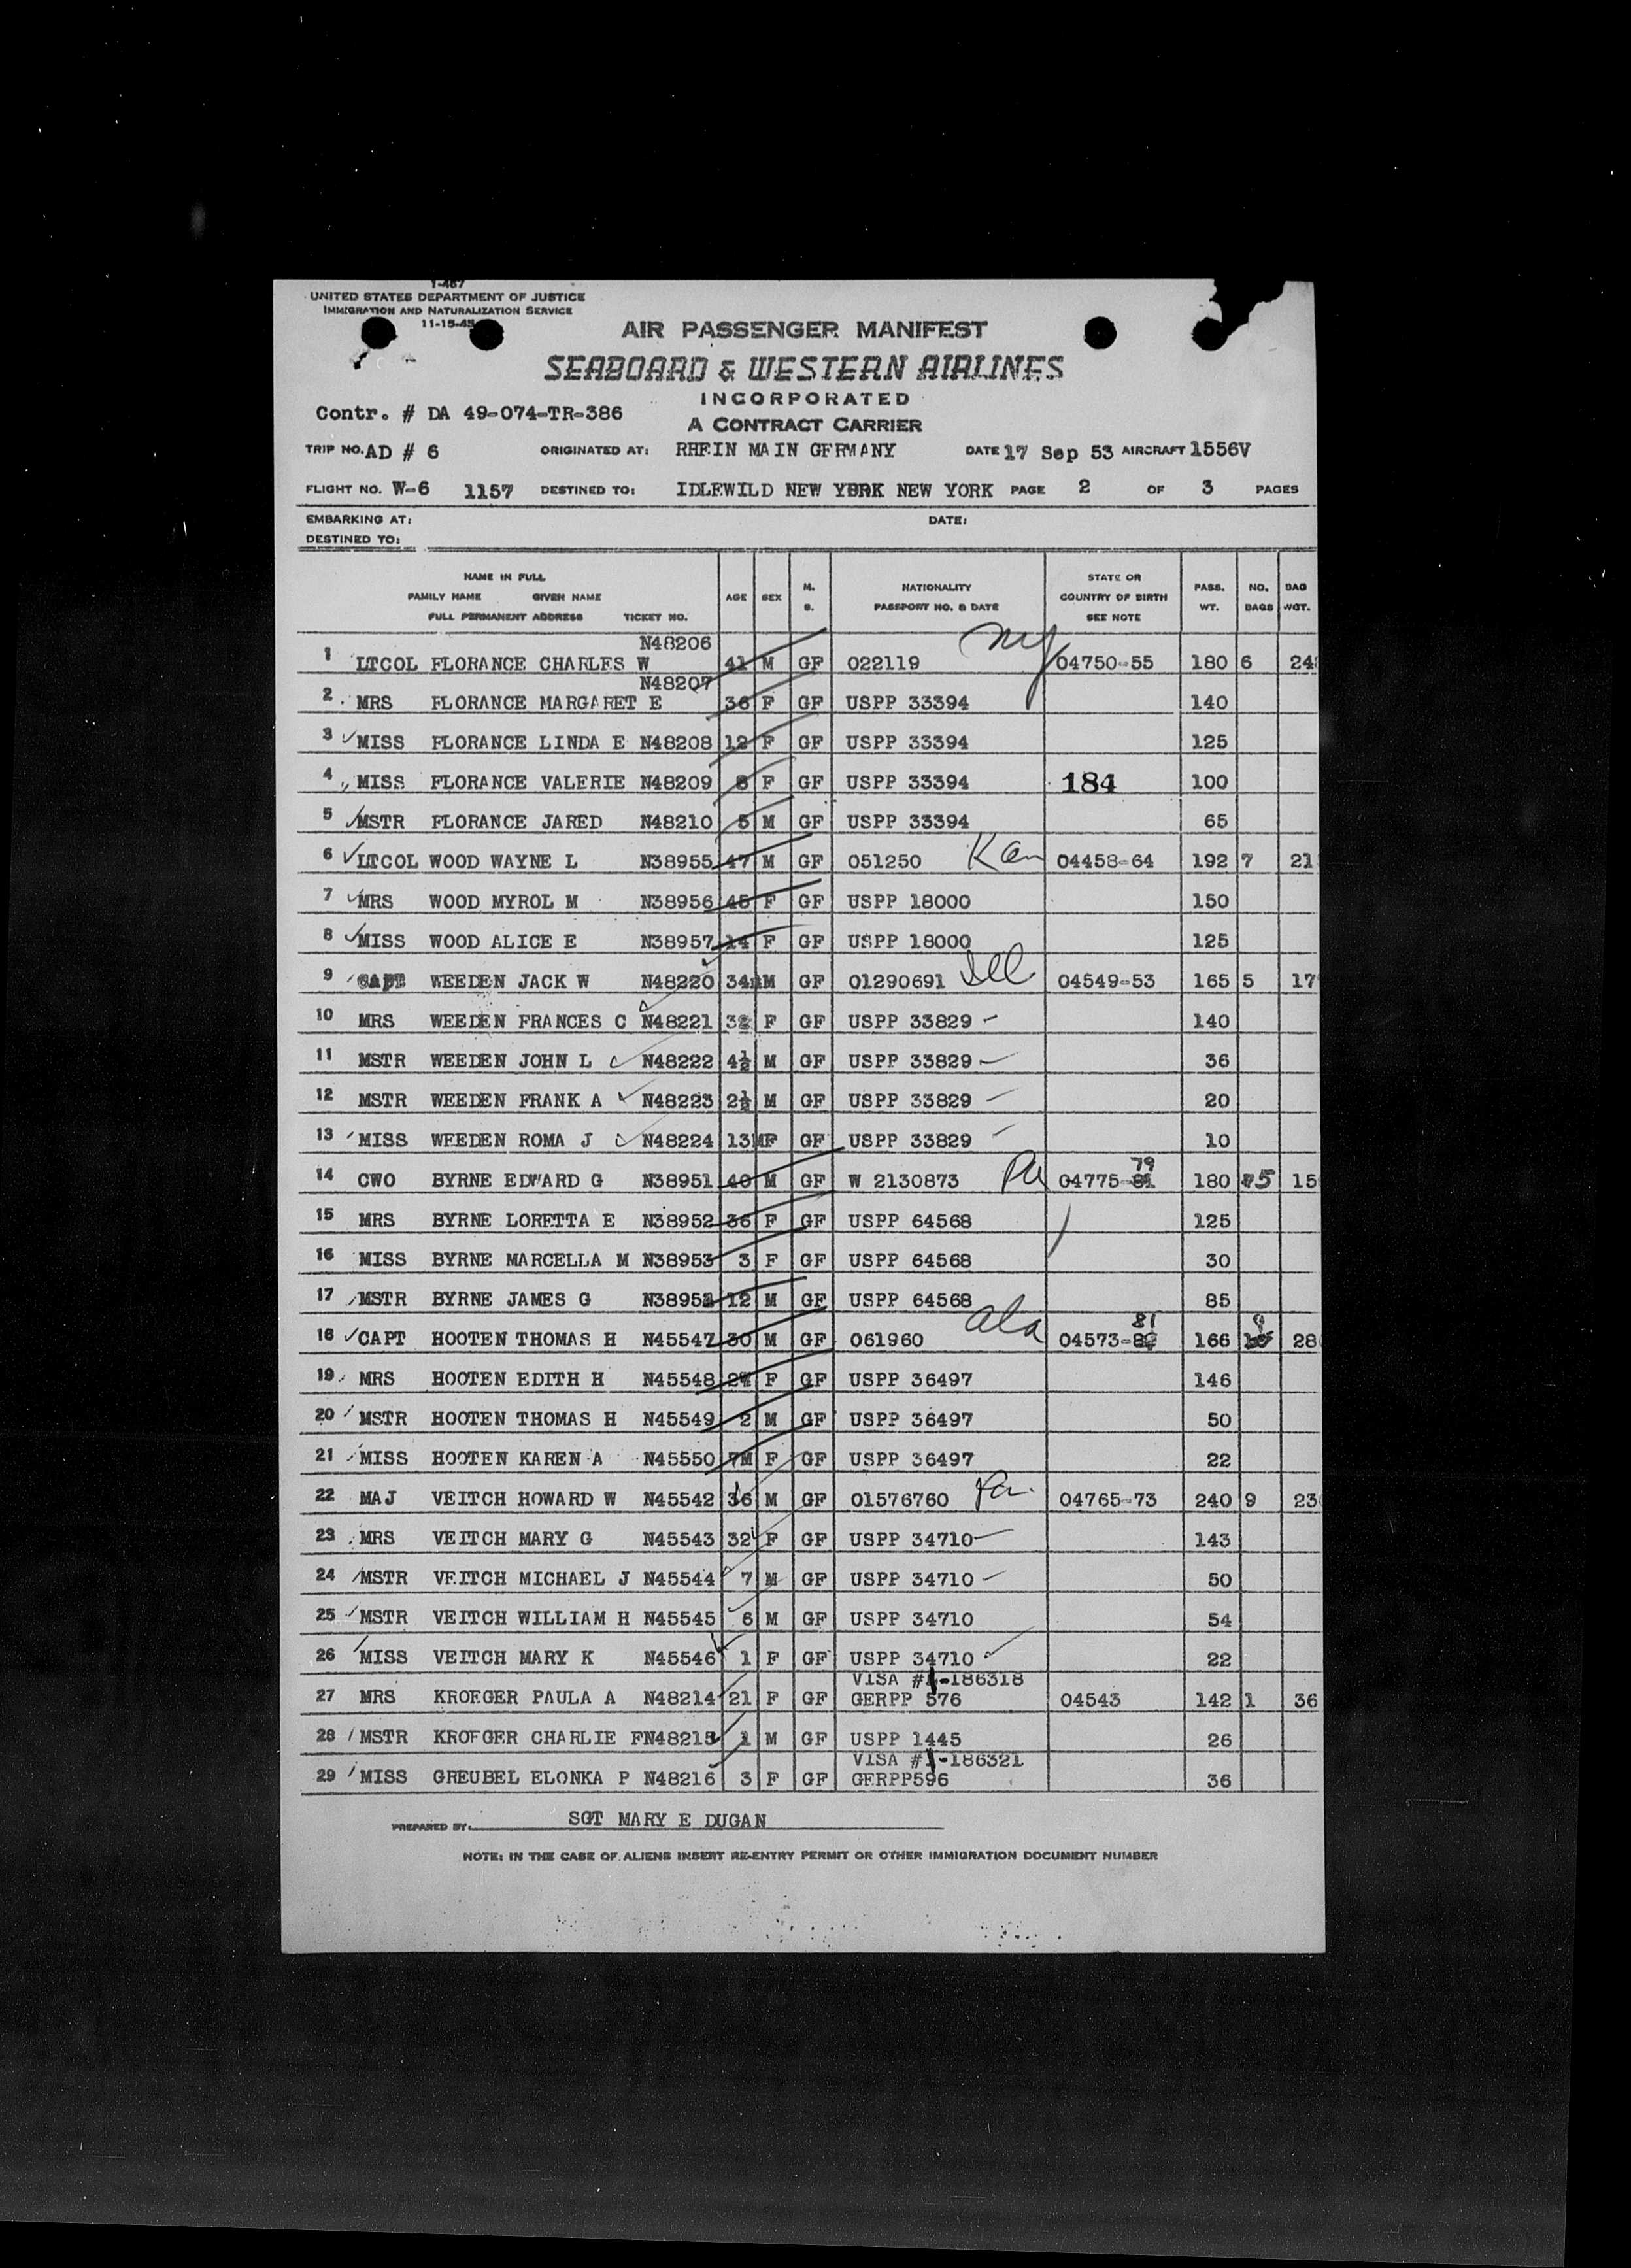 I-467
UNITED STATES DEPARTMENT OF JUSTICE
IMMIGRATION AND NATURALIZATION SERVICE
11-15-45
AIR PASSENGER MANIFEST
SEABOARD & WESTERN AIRLINES
INCORPORATED
Contr. # DA 49-074-TR-386
A CONTRACT CARRIER
TRIP NO. AD # 6 ORIGINATED AT: RHEIN MAIN GERMANY DATE 17 Sep 53 AIRCRAFT 1556V
FLIGHT NO. W-6 1157 DESTINED TO: IDLEWILD NEW YORK NEW YORK PAGE 2 OF 3 PAGES
EMBARKING AT: DATE:
DESTINED TO:
NAME IN FULL
FAMILY NAME GIVEN NAME
FULL PERMANENT ADDRESS TICKET NO. AGE SEX M. S. NATIONALITY PASSPORT NO. & DATE STATE OR COUNTRY OF BIRTH SEE NOTE PASS. WT. NO. BAGS BAG WGT.
N48206
1 LTCOL FLORANCE CHARLES W 41 M GF 022119 NY 04750-55 180 6 24
N48207
2 MRS FLORANCE MARGARET E 36 F GF USPP 33394 140
3 MISS FLORANCE LINDA E N48208 12 F GF USPP 33394 125
4 MISS FLORANCE VALERIE N48209 8 F GF USPP 33394 184 100
5 MSTR FLORANCE JARED N48210 5 M GF USPP 33394 65
6 LTCOL WOOD WAYNE L N38955 47 M GF 051250 Kan 04458-64 192 7 21
7 MRS WOOD MYROL M N38956 45 F GF USPP 18000 150
8 MISS WOOD ALICE E N38957 14 F GF USPP 18000 125
9 CAPT WEEDEN JACK W N48220 34 M GF 01290691 Ill 04549-53 165 5 17
10 MRS WEEDEN FRANCES C N48221 F GF USPP 33829 140
11 MSTR WEEDEN JOHN L N48222 4½ M GF USPP 33829 36
12 MSTR WEEDEN FRANK A N48223 2½ M GF USPP 33829 20
13 MISS WEEDEN ROMA J N48224 13M F GF USPP 33829 10
14 CWO BYRNE EDWARD G N38951 40 M GF W 2130873 Pa 04775-81 79 180 5 15
15 MRS BYRNE LORETTA E N38952 36 F GF USPP 64568 125
16 MISS BYRNE MARCELLA M N38953 3 F GF USPP 64568 30
17 MSTR BYRNE JAMES G 12 M GF USPP 64568 85
18 CAPT HOOTEN THOMAS H N45547 30 M GF 061960 Ala 04573- 81 166 9 28
19 MRS HOOTEN EDITH H N45548 F GF USPP 36497 146
20 MSTR HOOTEN THOMAS H N45549 2 M GF USPP 36497 50
21 MISS HOOTEN KAREN A N45550 7M F GF USPP 36497 22
22 MAJ VEITCH HOWARD W N45542 36 M GF 01576760 Pa. 04765-73 240 9 23
23 MRS VEITCH MARY G N45543 32 F GF USPP 34710 143
24 MSTR VEITCH MICHAEL J N45544 7 M GF USPP 34710 50
25 MSTR VEITCH WILLIAM H N45545 6 M GF USPP 34710 54
26 MISS VEITCH MARY K N45546 1 F GF USPP 34710 22
VISA # -186318
27 MRS KROEGER PAULA A N48214 21 F GF GERPP 576 04543 142 1 36
28 MSTR KROEGER CHARLIE F N48215 1 M GF USPP 1445 26
VISA # -186321
29 MISS GREUBEL ELONKA P N48216 3 F GF GERPP596 36
PREPARED BY: SGT MARY E DUGAN
NOTE: IN THE CASE OF ALIENS INSERT RE-ENTRY PERMIT OR OTHER IMMIGRATION DOCUMENT NUMBER